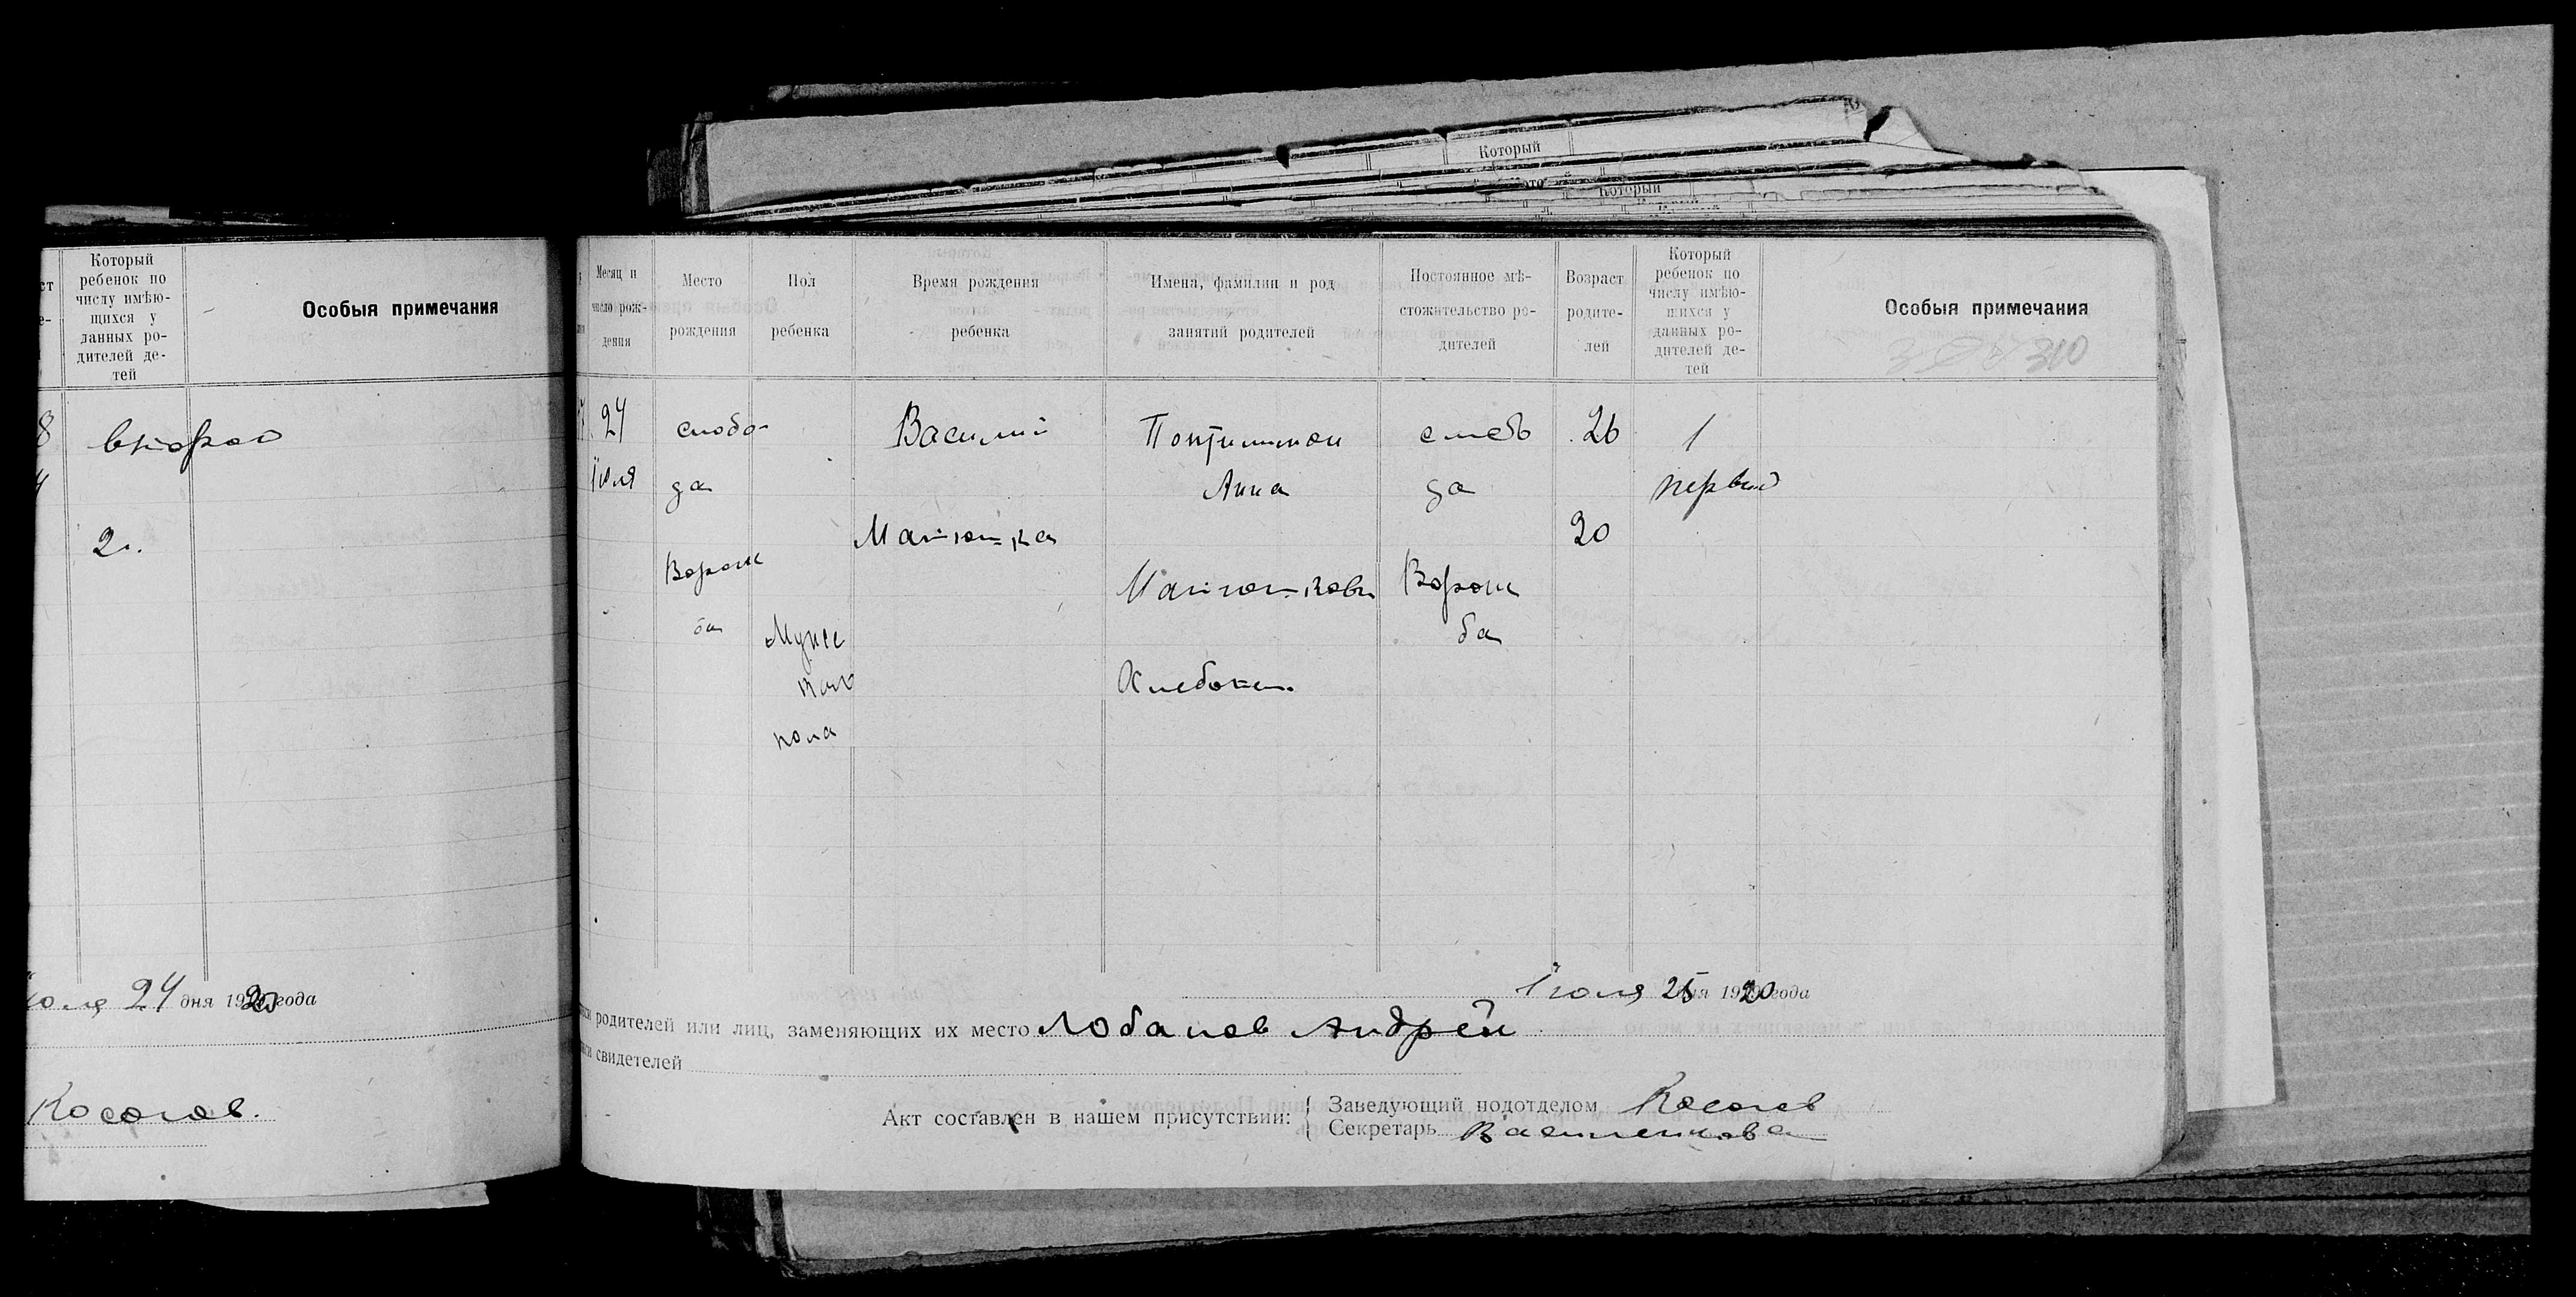 Который
Который
Который ребенок по числу имѣю-щихся у данных ро-дителей де-тей
Особыя примечания
второй
2.
24 дня 1920 года
Косогов.
Месяц и число рож-дения
Место рождения
Пол ребенка
Время рождения ребенка
Имена, фамилии и род занятий родителей
Постоянное мѣ-стожительство ро-дителей
Возраст родите-лей
Который ребенок по числу имѣю-щихся у данных ро-дителей де-тей
Особыя примечания
310
24
Июля
слобо-
да
Ворож
ба
Муже
ского
пола
Василий
Матюшка
Анна
Матюшковы
Хлебопаш.
слобо
да
Ворож
ба
26
20
1
первый
Июля 25 дня 1920 года
родителей или лиц, заменяющих их место Лобанов Андрей
свидетелей
Акт составлен в нашем присутствии:
Заведующий подотделом Косогов
Секретарь Василенкова